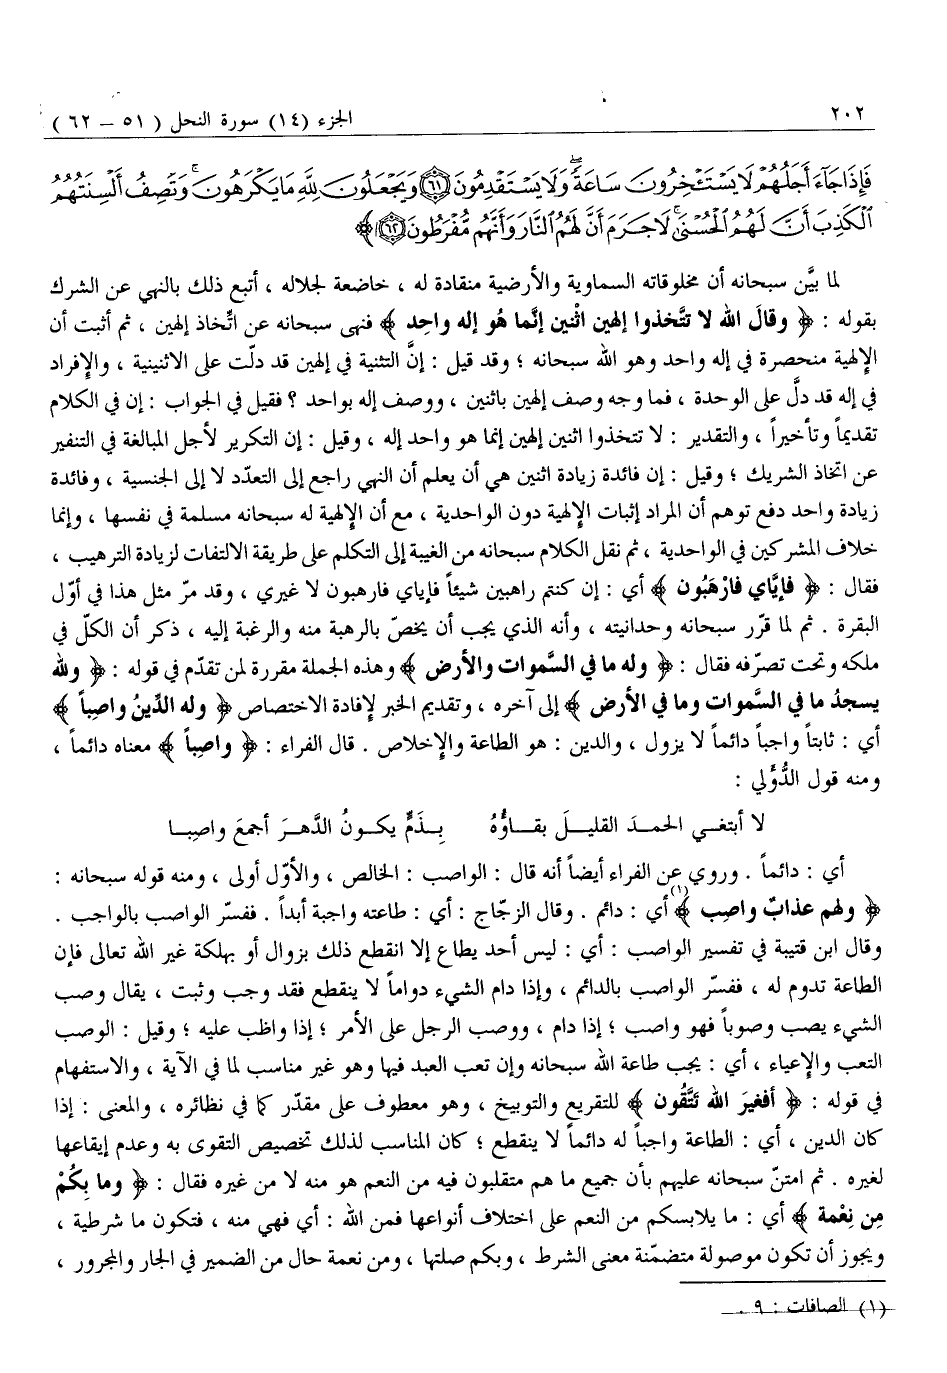 ٢٠٢ الجزء (١٤) سورة النحل ( ٥١ – ٦٢ )
فَإِذَا جَآءَ أَجَلُهُمْ لَا يَسْتَـْٔخِرُونَ سَاعَةً ۖ وَلَا يَسْتَقْدِمُونَ ٦١ وَيَجْعَلُونَ لِلَّهِ مَا يَكْرَهُونَ ۚ وَتَصِفُ أَلْسِنَتُهُمُ
ٱلْكَذِبَ أَنَّ لَهُمُ ٱلْحُسْنَىٰ ۚ لَا جَرَمَ أَنَّ لَهُمُ ٱلنَّارَ وَأَنَّهُم مُّفْرَطُونَ ٦٢ ﴾
لما بيَّن سبحانه أن مخلوقاته السماوية والأرضية منقادة له ، خاضعة لجلاله ، أتبع ذلك بالنهي عن الشرك
بقوله : ﴿ وقالَ الله لا تتَّخذوا إلهين اثْنين إنَّما هُو إله واحِد ﴾ فنهى سبحانه عن اتِّخاذ إلهين ، ثم أثبت أن
الإلهية منحصرة في إله واحد وهو الله سبحانه ؛ وقد قيل : إنَّ التثنية في إلهين قد دلّت على الاثنينية ، والإفراد
في إله قد دلَّ على الوحدة ، فما وجه وصف إلهين باثنين ، ووصف إله بواحد ؟ فقيل في الجواب : إن في الكلام
تقديماً وتأخيراً ، والتقدير : لا تتخذوا اثنين إلهين إنما هو واحد إله ، وقيل : إن التكرير لأجل المبالغة في التنفير
عن اتخاذ الشريك ؛ وقيل : إن فائدة زيادة اثنين هي أن يعلم أن النهي راجع إلى التعدّد لا إلى الجنسية ، وفائدة
زيادة واحد دفع توهم أن المراد إثبات الإلهية دون الواحدية ، مع أن الإلهية له سبحانه مسلمة في نفسها ، وإنما
خلاف المشركين في الواحدية ، ثم نقل الكلام سبحانه من الغيبة إلى التكلم على طريقة الالتفات لزيادة الترهيب ،
فقال : ﴿ فإيَّاي فارْهَبُون ﴾ أي : إن كنتم راهبين شيئاً فإياي فارهبون لا غيري ، وقد مرّ مثل هذا في أوّل
البقرة . ثم لما قرّر سبحانه وحدانيته ، وأنه الذي يجب أن يخصّ بالرهبة منه والرغبة إليه ، ذكر أن الكلّ في
ملكه وتحت تصرّفه فقال : ﴿ وله ما في السَّموات والأرض ﴾ وهذه الجملة مقررة لمن تقدّم في قوله : ﴿ ولله
يسجدُ ما في السَّموات وما في الأرض ﴾ إلى آخره ، وتقديم الخبر لإفادة الاختصاص ﴿ وله الدِّينُ واصِباً ﴾
أي : ثابتاً واجباً دائماً لا يزول ، والدين : هو الطاعة والإخلاص . قال الفراء : ﴿ واصِباً ﴾ معناه دائماً ،
ومنه قول الدُّؤَلي :
لا أبتغي الحمدَ القليلَ بقاؤُهُ بذَمٍّ يكونُ الدَّهرَ أجمعَ واصِبا
أي : دائماً . وروي عن الفراء أيضاً أنه قال : الواصب : الخالص ، والأوّل أولى ، ومنه قوله سبحانه :
﴿ ولهم عذابٌ واصِب ﴾(١) أي : دائم . وقال الزجّاج : أي : طاعته واجبة أبداً . ففسّر الواصب بالواجب .
وقال ابن قتيبة في تفسير الواصب : أي : ليس أحد يطاع إلا انقطع ذلك بزوال أو بهلكة غير الله تعالى فإن
الطاعة تدوم له ، ففسّر الواصب بالدائم ، وإذا دام الشيء دواماً لا ينقطع فقد وجب وثبت ، يقال وصب
الشيء يصب وصوباً فهو واصب ؛ إذا دام ، ووصب الرجل على الأمر ؛ إذا واظب عليه ؛ وقيل : الوصب
التعب والإعياء ، أي : يجب طاعة الله سبحانه وإن تعب العبد فيها وهو غير مناسب لما في الآية ، والاستفهام
في قوله : ﴿ أفغيرَ الله تَتَّقُون ﴾ للتقريع والتوبيخ ، وهو معطوف على مقدّر كما في نظائره ، والمعنى : إذا
كان الدين ، أي : الطاعة واجباً له دائماً لا ينقطع ؛ كان المناسب لذلك تخصيص التقوى به وعدم إيقاعها
لغيره . ثم امتنّ سبحانه عليهم بأن جميع ما هم متقلبون فيه من النعم هو منه لا من غيره فقال : ﴿ وما بِكُمْ
مِن نِعْمة ﴾ أي : ما يلابسكم من النعم على اختلاف أنواعها فمن الله : أي فهي منه ، فتكون ما شرطية ،
ويجوز أن تكون موصولة متضمّنة معنى الشرط ، وبكم صلتها ، ومن نعمة حال من الضمير في الجار والمجرور ،
(١) الصافات : ٩ .